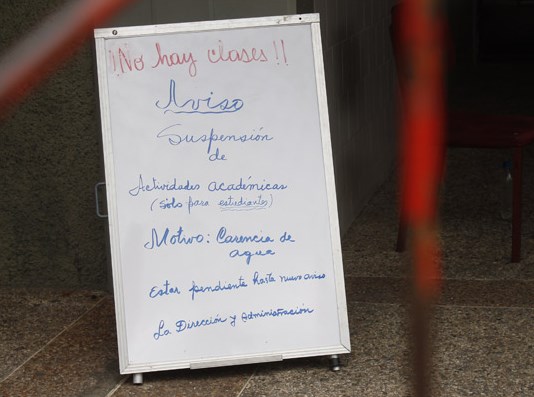 ¡No hay clases!!
Aviso
Suspensión
de
Actividades académicas
(sólo para estudiantes)
Motivo: Carencia de
agua
Estar pendiente hasta nuevo aviso
La Dirección y Administración